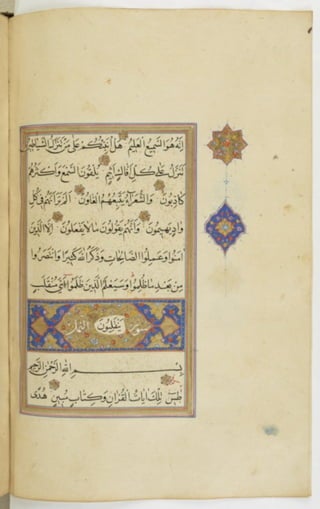 اِنَّهُ هُوَ السَّمِيعُ الْعَلِيمُ هَلْ اُنَبِّئُكُمْ عَلَى مَنْ تَنَزَّلُ الشَّيَاطِينُ
تَنَزَّلُ عَلَى كُلِّ اَفَّاكٍ اَثِيمٍ يُلْقُونَ السَّمْعَ وَاَكْثَرُهُمْ
كَاذِبُونَ وَالشُّعَرَاءُ يَتَّبِعُهُمُ الْغَاوُنَ اَلَمْ تَرَ اَنَّهُمْ فِي كُلِّ
وَادٍ يَهِيمُونَ وَاَنَّهُمْ يَقُولُونَ مَا لَا يَفْعَلُونَ اِلَّا الَّذِينَ
اٰمَنُوا وَعَمِلُوا الصَّالِحَاتِ وَذَكَرُوا اللّٰهَ كَثِيرًا وَانْتَصَرُوا
مِنْ بَعْدِ مَا ظُلِمُوا وَسَيَعْلَمُ الَّذِينَ ظَلَمُوا اَيَّ مُنْقَلَبٍ
سورة يَنْقَلِبُونَ النمل
بِسْمِ اللّٰهِ الرَّحْمٰنِ الرَّحِيمِ
طس تِلْكَ اٰيَاتُ الْقُرْاٰنِ وَكِتَابٍ مُبِينٍ هُدًى